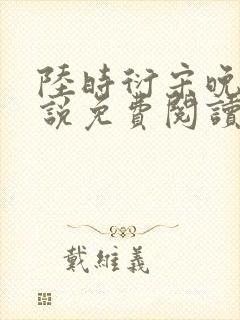 陸時衍宋晚
說免費閱讀
戴維義